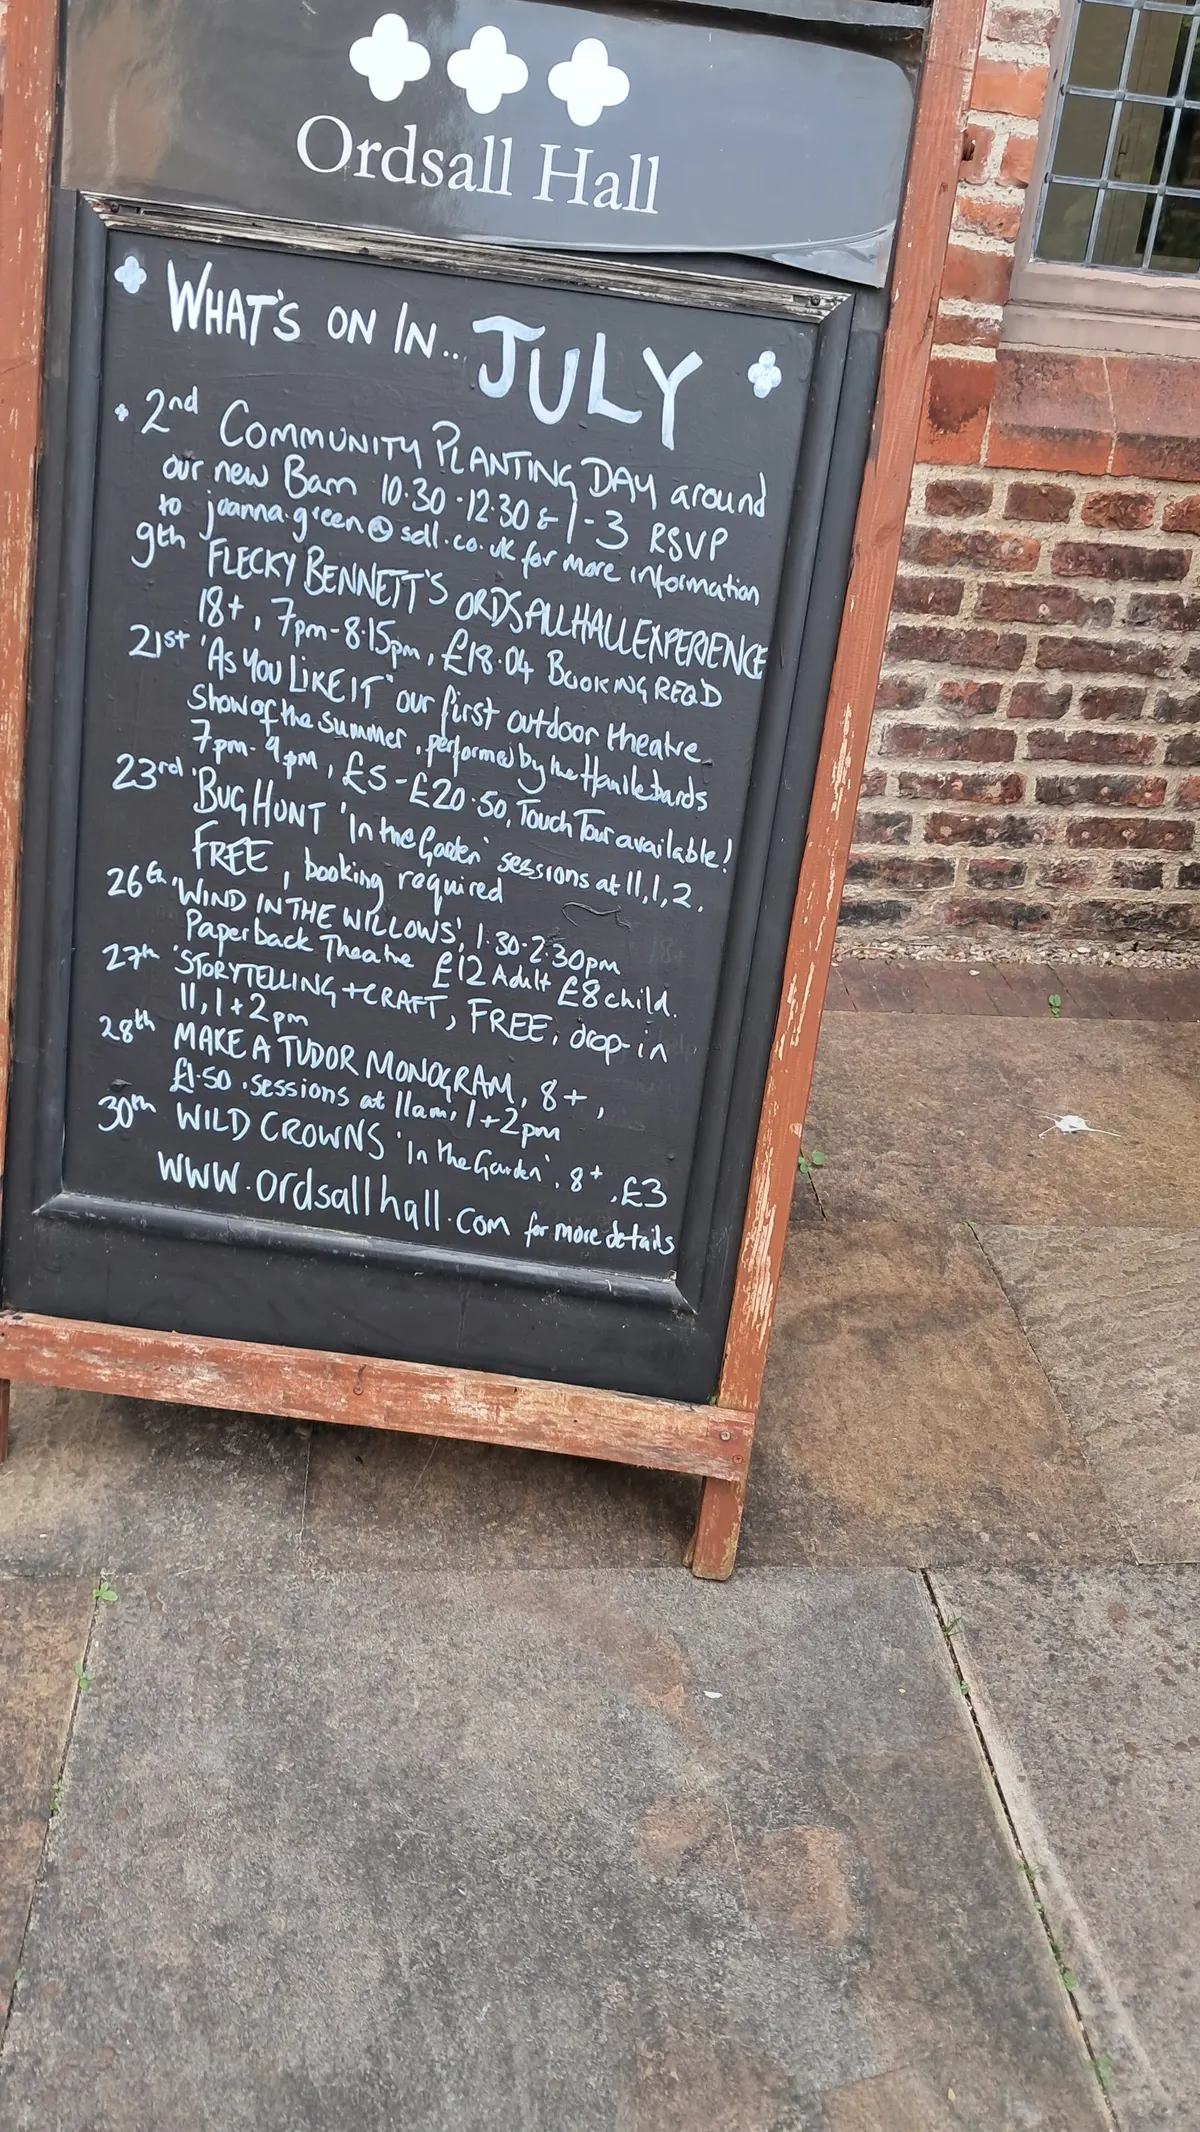 Ordsall Hall
WHAT'S ON IN... JULY
2nd COMMUNITY PLANTING DAY around
our new Barn 10.30-12.30 & 1-3 RSVP
to joanna.green@scll.co.uk for more information
9th FLECKY BENNETT'S ORDSALL HALL EXPERIENCE
18+, 7pm-8.15pm, £18.04 BOOKING REQ'D
21st 'AS YOU LIKE IT' our first outdoor theatre
show of the summer, performed by the Handlebards
7pm-9pm, £5-£20.50, Touch Tour available!
23rd 'BUG HUNT 'in the Garden' sessions at 11,1,2,
FREE, booking required
26th 'WIND IN THE WILLOWS', 1.30-2.30pm
Paperback Theatre £12 Adult £8 child.
27th 'STORYTELLING + CRAFT, FREE, drop-in
11,1+2pm
28th MAKE A TUDOR MONOGRAM, 8+,
£1.50, sessions at 11am, 1+2pm
30th WILD CROWNS 'in the Garden', 8+, £3
www.ordsallhall.com for more details